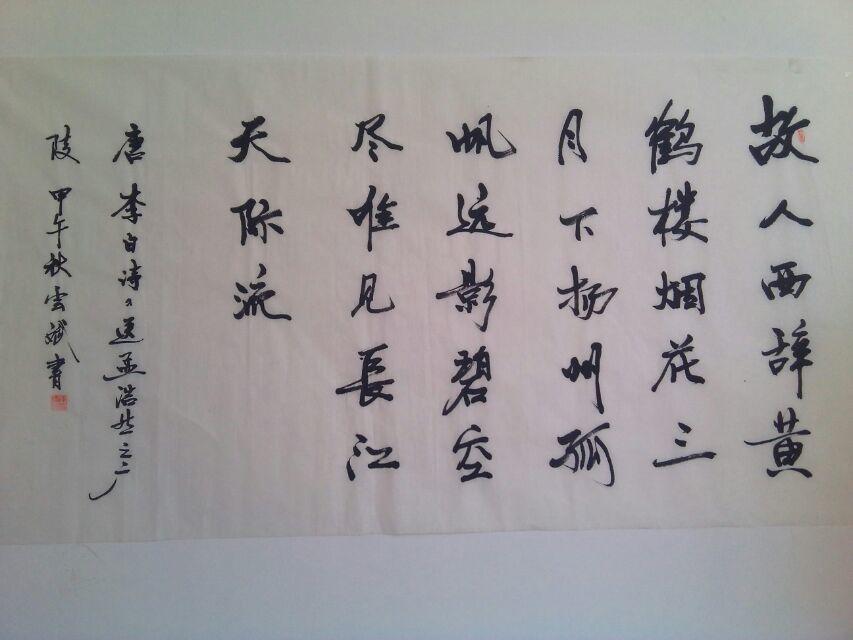 故人西辞黄
鹤楼烟花三
月下扬州孤
帆远影碧空
尽惟见長江
天际流
唐李白诗々送孟浩然之广
陵甲午秋雲斌書